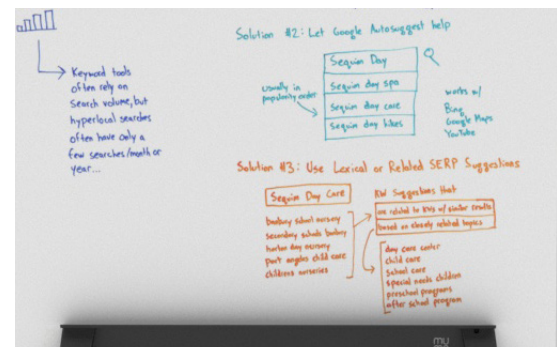 Keyword tools
often rely on
search volume, but
hyperlocal searches
often have only a
few searches/month or
year...
Solution #2: Let Google Autosuggest help
Sequim Day
Sequim day spa
Sequim day care
Sequim day hikes
usually in
popularity order
works w/
Bing
Google Maps
YouTube
Solution #3: Use Lexical or Related SERP Suggestions
Sequim Day Care
banbury school nursery
secondary schools banbury
horton day nursery
port angeles child care
childrens nurseries
KW Suggestions that
are related to KWs w/ similar results
based on already related topics
day care center
child care
school care
special needs children
preschool programs
after school program
my